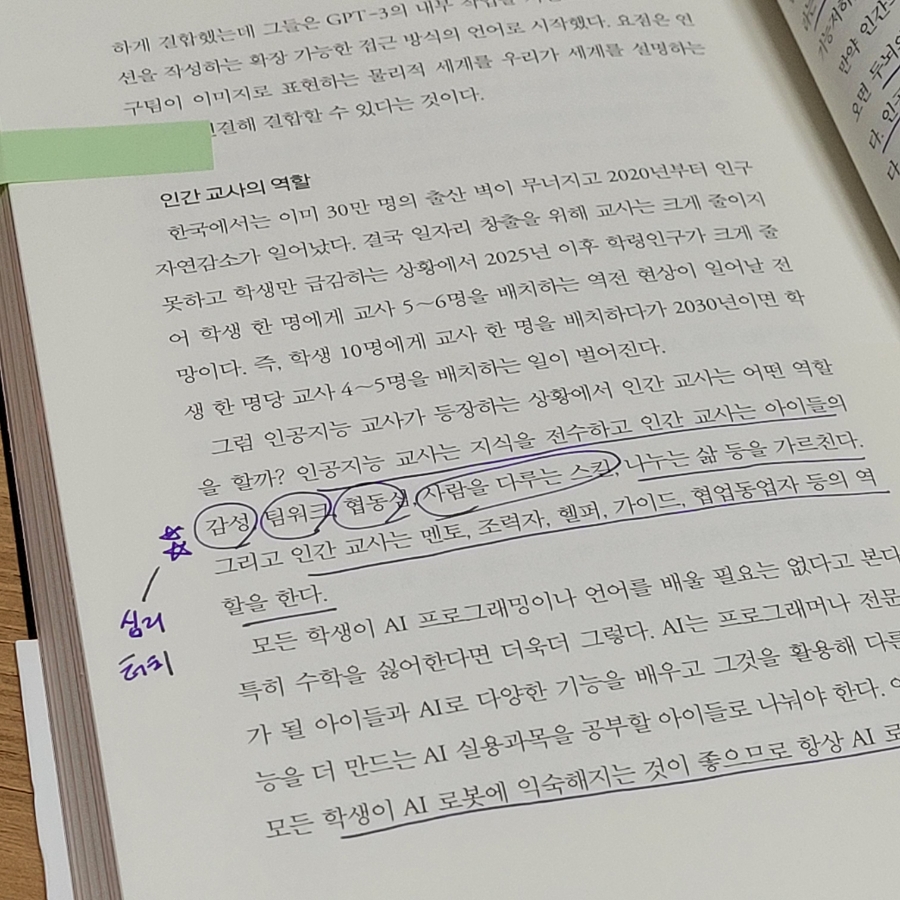 하게 결합했는데 그들은 GPT-3의 내부
션을 작성하는 확장 가능한 접근 방식의 언어로 시작했다. 요점은 연
구팀이 이미지로 표현하는 물리적 세계를 우리가 세계를 설명하는
연결해 결합할 수 있다는 것이다.
인간 교사의 역할
한국에서는 이미 30만 명의 출산 벽이 무너지고 2020년부터 인구
자연감소가 일어났다. 결국 일자리 창출을 위해 교사는 크게 줄이지
못하고 학생만 급감하는 상황에서 2025년 이후 학령인구가 크게 줄
어 학생 한 명에게 교사 5~6명을 배치하는 역전 현상이 일어날 전
망이다. 즉, 학생 10명에게 교사 한 명을 배치하다가 2030년이면 학
생 한 명당 교사 4~5명을 배치하는 일이 벌어진다.
그럼 인공지능 교사가 등장하는 상황에서 인간 교사는 어떤 역할
을 할까? 인공지능 교사는 지식을 전수하고 인간 교사는 아이들의
감성, 팀워크, 협동심, 사람을 다루는 스킬, 나누는 삶 등을 가르친다.
그리고 인간 교사는 멘토, 조력자, 헬퍼, 가이드, 협업동업자 등의 역
할을 한다.
심리
터치
모든 학생이 AI 프로그래밍이나 언어를 배울 필요는 없다고 본다
특히 수학을 싫어한다면 더욱더 그렇다. AI는 프로그래머나 전문
가 될 아이들과 AI로 다양한 기능을 배우고 그것을 활용해 다른
능을 더 만드는 AI 실용과목을 공부할 아이들로 나눠야 한다.
모든 학생이 AI 로봇에 익숙해지는 것이 좋으므로 항상 AI 로
만약 인간
오면 두뇌
다. 인공
다